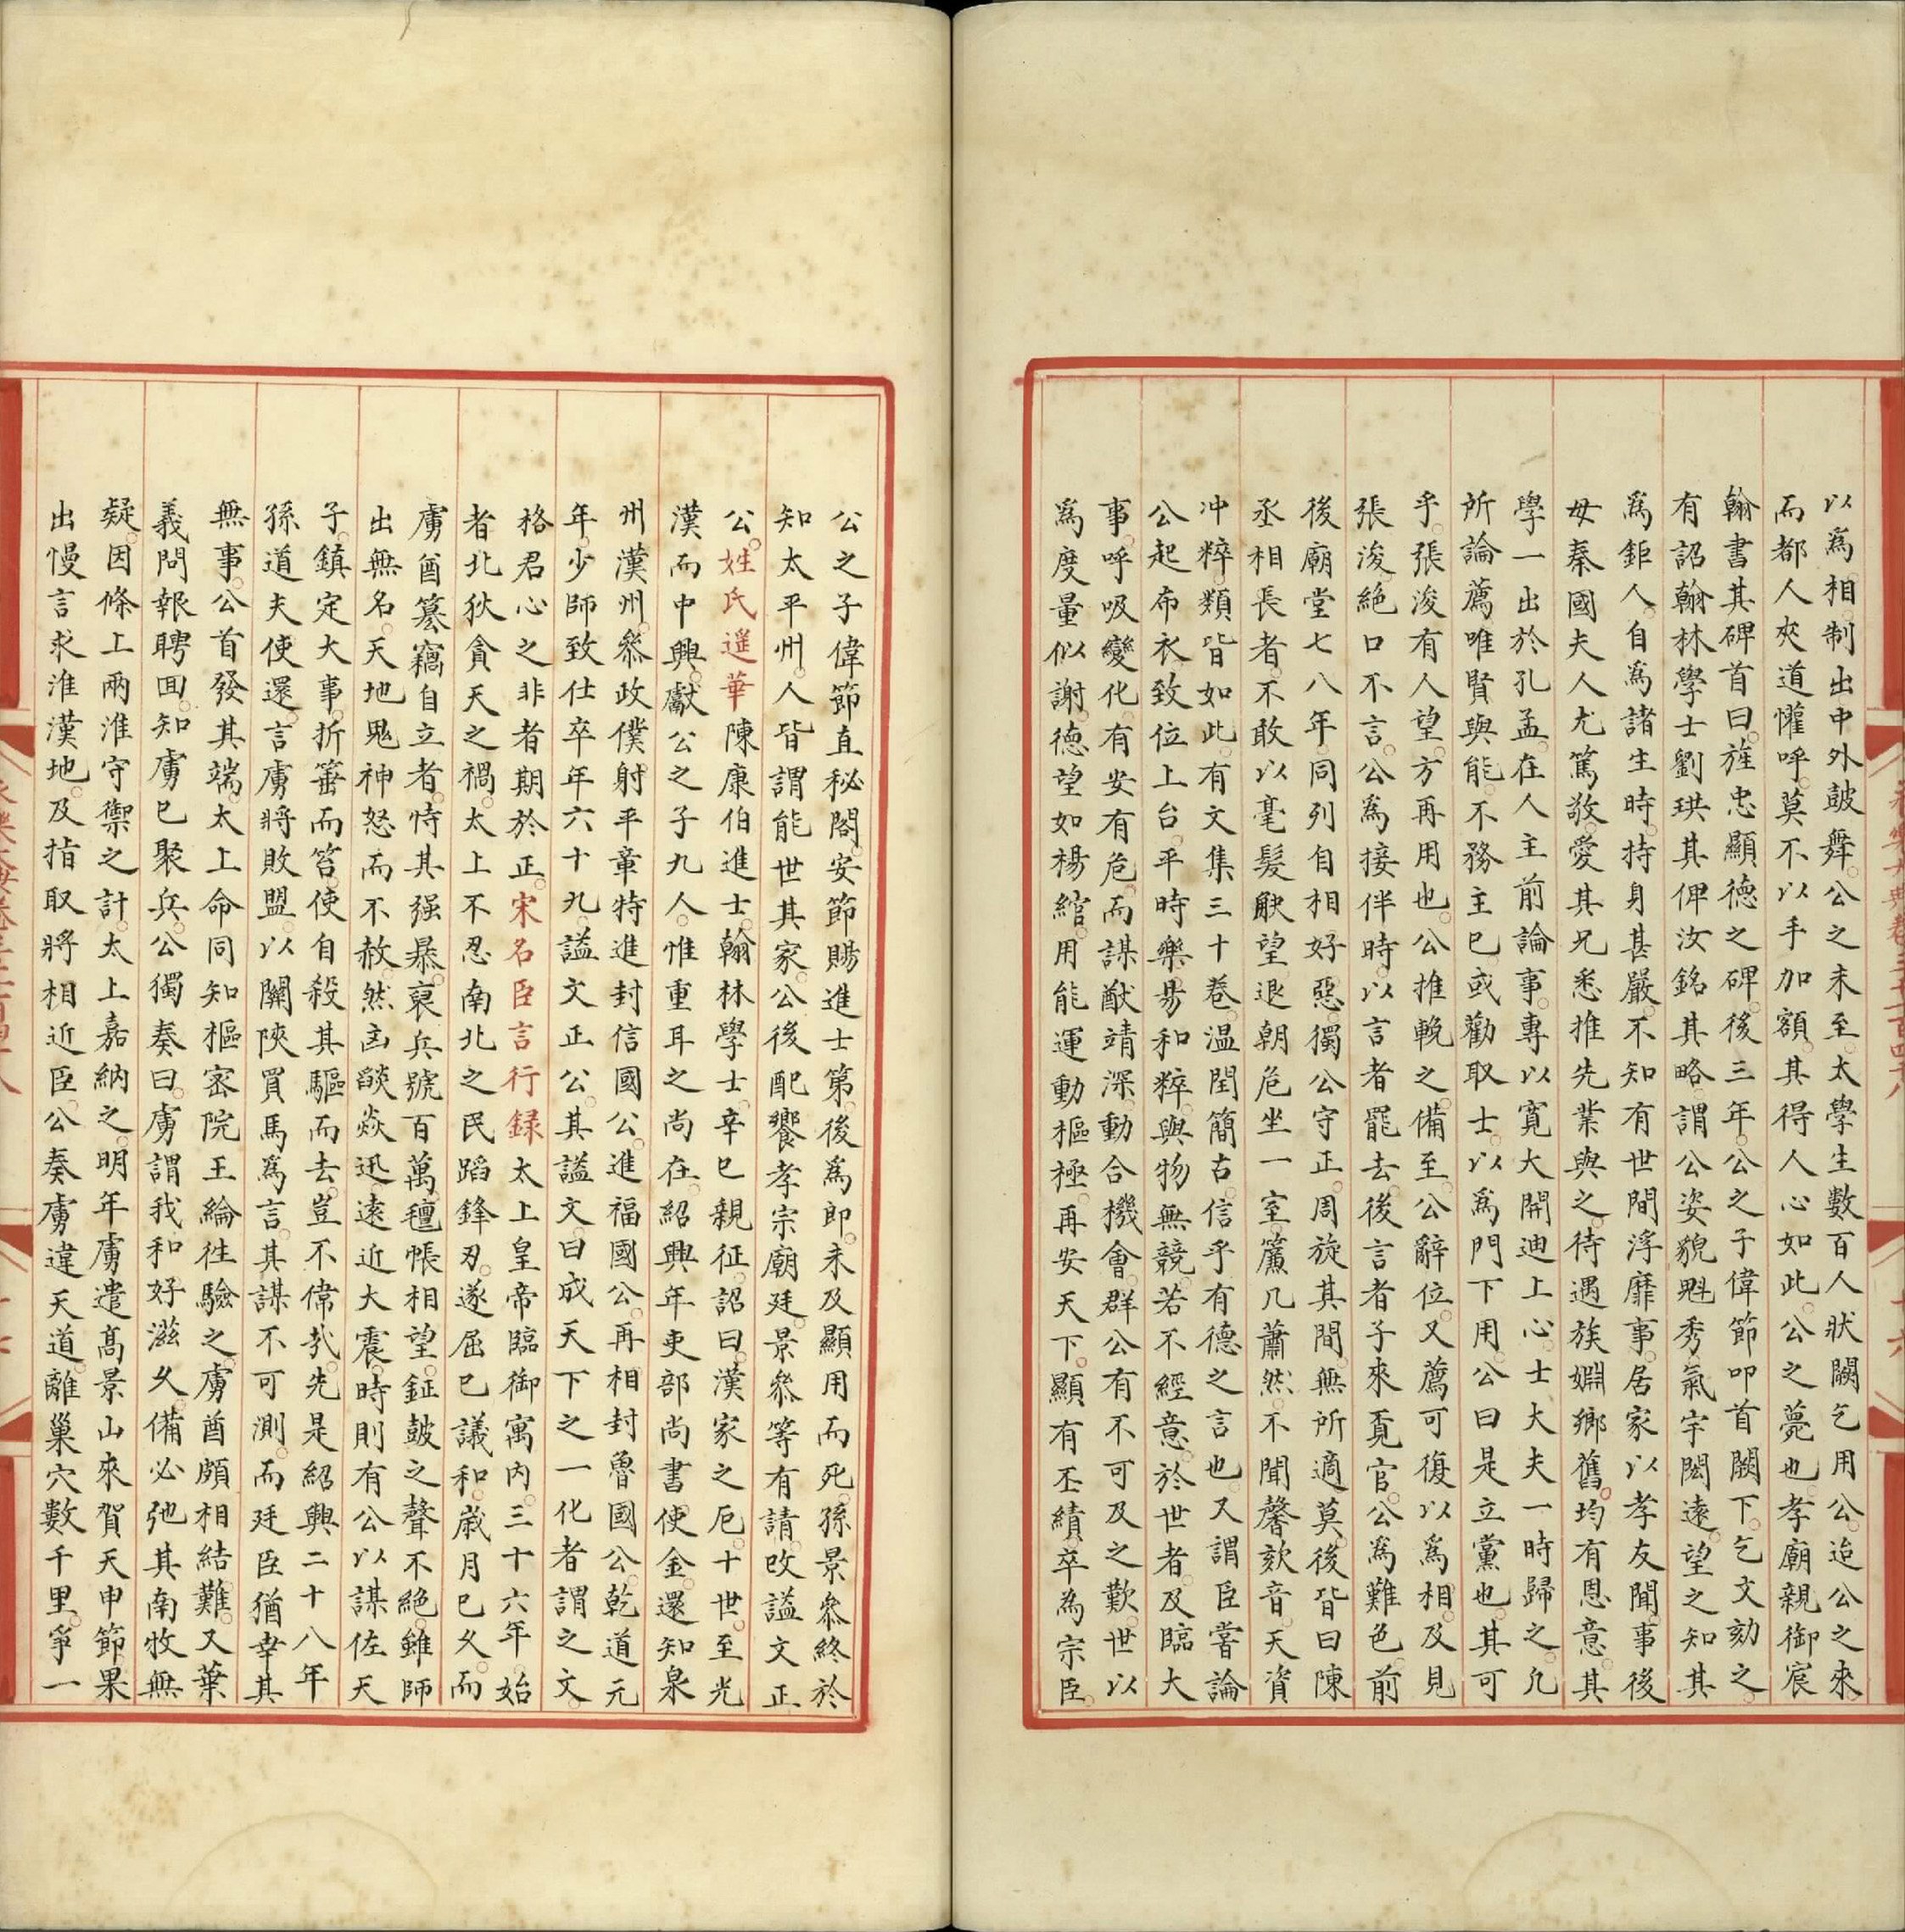 以爲相制出中外皷舞公之未至太學生數百人状闕乞用公迨公之來
而都人夾道懽呼莫不以手加額其得人心如此公之薨也孝廟親御宸
翰書其碑首曰旌忠顯德之碑後三年公之子偉節叩首闕下乞文効之
有詔翰林學士劉珙其俾汝銘其略謂公姿貌魁秀氣宇閎遠望之知其
爲鉅人自爲諸生時持身甚嚴不知有世間浮靡事居家以孝友聞事後
母秦國夫人尤篤敬愛其兄悉推先業與之待遇族婣鄉舊均有恩意其
學一出於孔孟在人主前論事專以寛大開迪上心士大夫一時歸之凡
所論薦唯賢與能不務主已或勸取士以爲門下用公曰是立黨也其可
乎張浚有人望方再用也公推輓之備至公辭位又薦可復以爲相及見
張浚絶口不言公爲接伴時以言者罷去後言者子來覔官公爲難色前
後廟堂七八年同列自相好惡獨公守正周旋其間無所適莫後皆曰陳
丞相長者不敢以毫髮觖望退朝危坐一室簾几蕭然不聞謦欬音天資
冲粹類皆如此有文集三十卷温閏簡古信乎有德之言也又謂臣嘗論
公起布衣致位上台平時樂昜和粹與物無競若不經意於世者及臨大
事呼吸變化有安有危而謀猷靖深動合機會群公有不可及之歎世以
爲度量似謝德望如楊綰用能運動樞極再安天下顯有丕績卒為宗臣
公之子偉節直秘閣安節賜進士第後爲郎未及顯用而死孫景叅終於
知太平州人皆謂能世其家公後配饗孝宗廟廷景叅等有請攺謚文正
公姓氏遥華陳康伯進士翰林學士辛巳親征詔曰漢家之厄十世至光
漢而中興獻公之子九人惟重耳之尚在紹興年吏部尚書使金還知泉
州漢州叅政僕射平章特進封信國公進福國公再相封魯國公乾道元
年少師致仕卒年六十九謚文正公其謚文曰成天下之一化者謂之文
格君心之非者期於正宋名臣言行録太上皇帝臨御寓内三十六年始
者北狄貪天之禍太上不忍南北之民蹈鋒刃遂屈已議和歳月已久而
虜酋簒竊自立者恃其强㬥裒兵號百萬氊帳相望鉦皷之聲不絶雖師
出無名天地鬼神怒而不赦然凾燄焱迅遠近大震時則有公以謀佐天
子鎮定大事折箠而笞使自殺其驅而去豈不偉㢤先是紹興二十八年
孫道夫使還言虜將敗盟以關陝買馬爲言其謀不可測而廷臣猶幸其
無事公首發其端太上命同知樞宻院王綸徃驗之虜酋頗相結難又葉
義問報聘囬知虜已聚兵公獨奏曰虜謂我和好滋久備必弛其南牧無
疑因條上兩淮守禦之計太上嘉納之明年虜遣高景山來賀天申節果
出慢言求淮漢地及指取將相近臣公奏虜違天道離巢穴數千里爭一